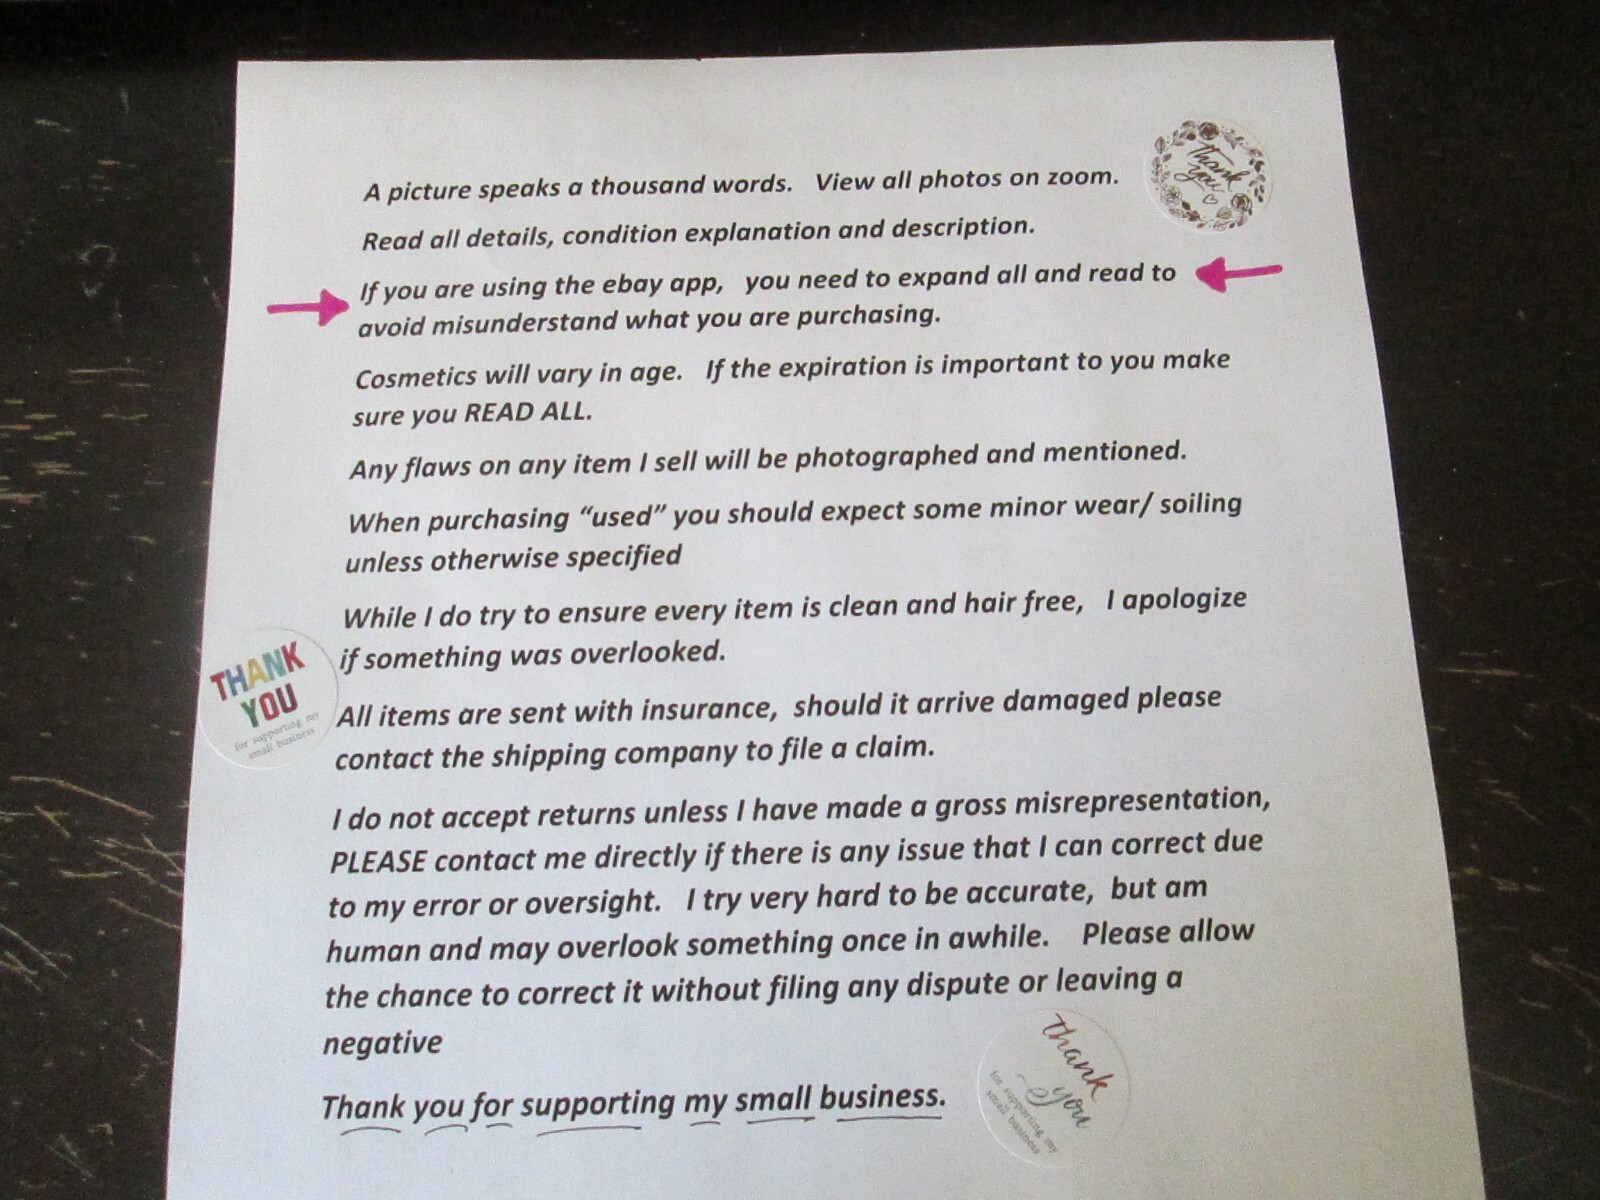 A picture speaks a thousand words. View all photos on zoom.
Thank
you
Read all details, condition explanation and description.
If you are using the ebay app, you need to expand all and read to
avoid misunderstand what you are purchasing.
Cosmetics will vary in age. If the expiration is important to you make
sure you READ ALL.
Any flaws on any item I sell will be photographed and mentioned.
When purchasing “used” you should expect some minor wear/ soiling
unless otherwise specified
While I do try to ensure every item is clean and hair free, I apologize
if something was overlooked.
THANK
YOU
for supporting my
small business
All items are sent with insurance, should it arrive damaged please
contact the shipping company to file a claim.
I do not accept returns unless I have made a gross misrepresentation,
PLEASE contact me directly if there is any issue that I can correct due
to my error or oversight. I try very hard to be accurate, but am
human and may overlook something once in awhile. Please allow
the chance to correct it without filing any dispute or leaving a
negative
Thank you for supporting my small business.
thank
you
for supporting my
small business